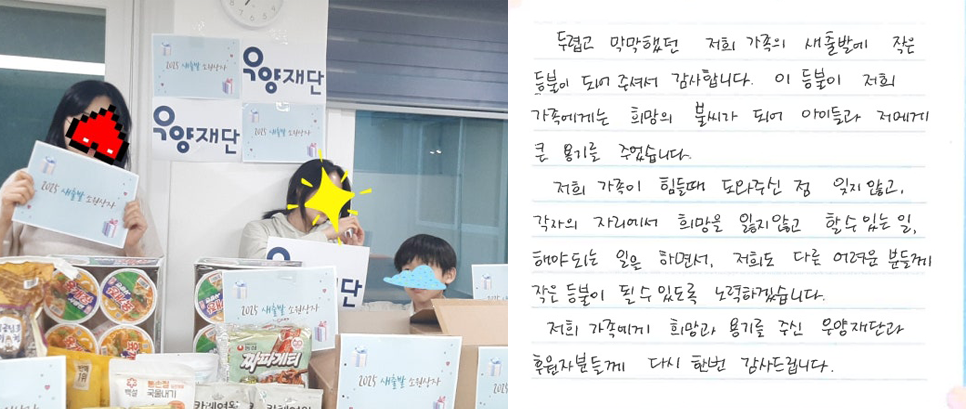 2025 새출발 소원상자
우양재단
우양재단
2025 새출발 소원상자
2025 새출발 소원상자
우양
단
2025 새출발 소원상자
농심
짜파게티
백설
국물내기
카레여왕
2025 새출발 소원상자
두렵고 막막했던 저희 가족의 새출발에 작은
등불이 되어 주셔서 감사합니다. 이 등불이 저희
가족에게는 희망의 불씨가 되어 아이들과 저에게
큰 용기를 주었습니다.
저희 가족이 힘들때 도와주신 점 잊지 않고,
각자의 자리에서 희망을 잃지않고 할 수 있는 일,
해야 되는 일은 하면서, 저희도 다른 어려운 분들께
작은 등불이 될 수 있도록 노력하겠습니다.
저희 가족에게 희망과 용기를 주신 우양재단과
후원자분들께 다시 한번 감사드립니다.